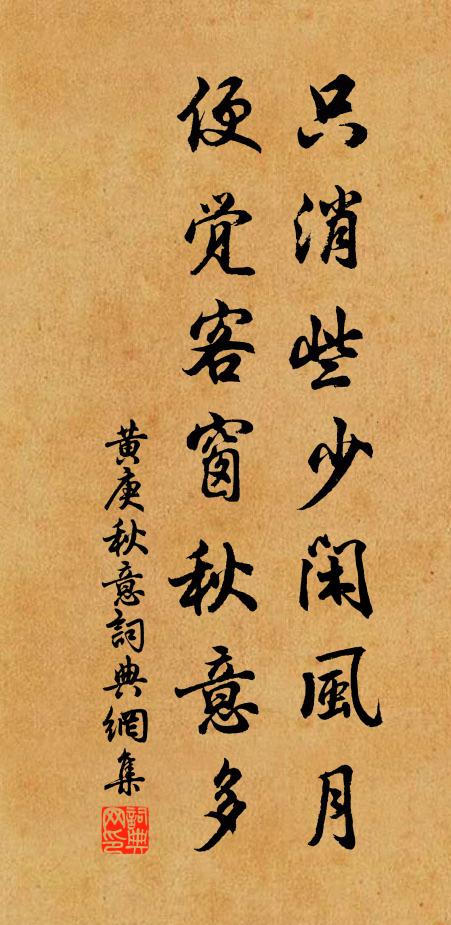 只消些少闲風月
便覺客窗秋意多
黄庚秋意詞典網集
詞典网印